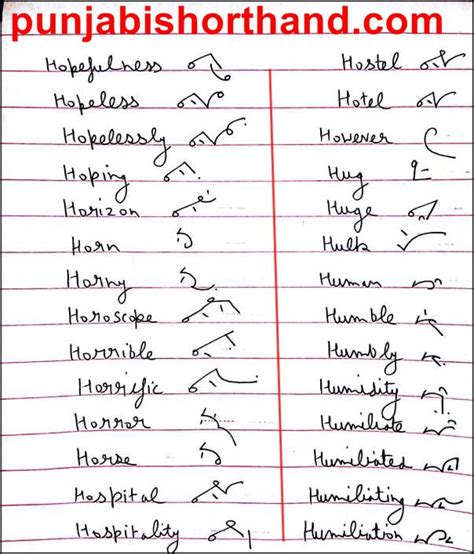 punjabishorthand.com
Hopefulness
Hopeless
Hopelessly
Hoping
Horizon
Horn
Horny
Horoscope
Horrible
Horrific
Horror
Horse
Hospital
Hospitality
Hostel
Hotel
However
Hug
Huge
Hulk
Human
Humble
Humbly
Humidity
Humiliate
Humiliated
Humiliating
Humiliation